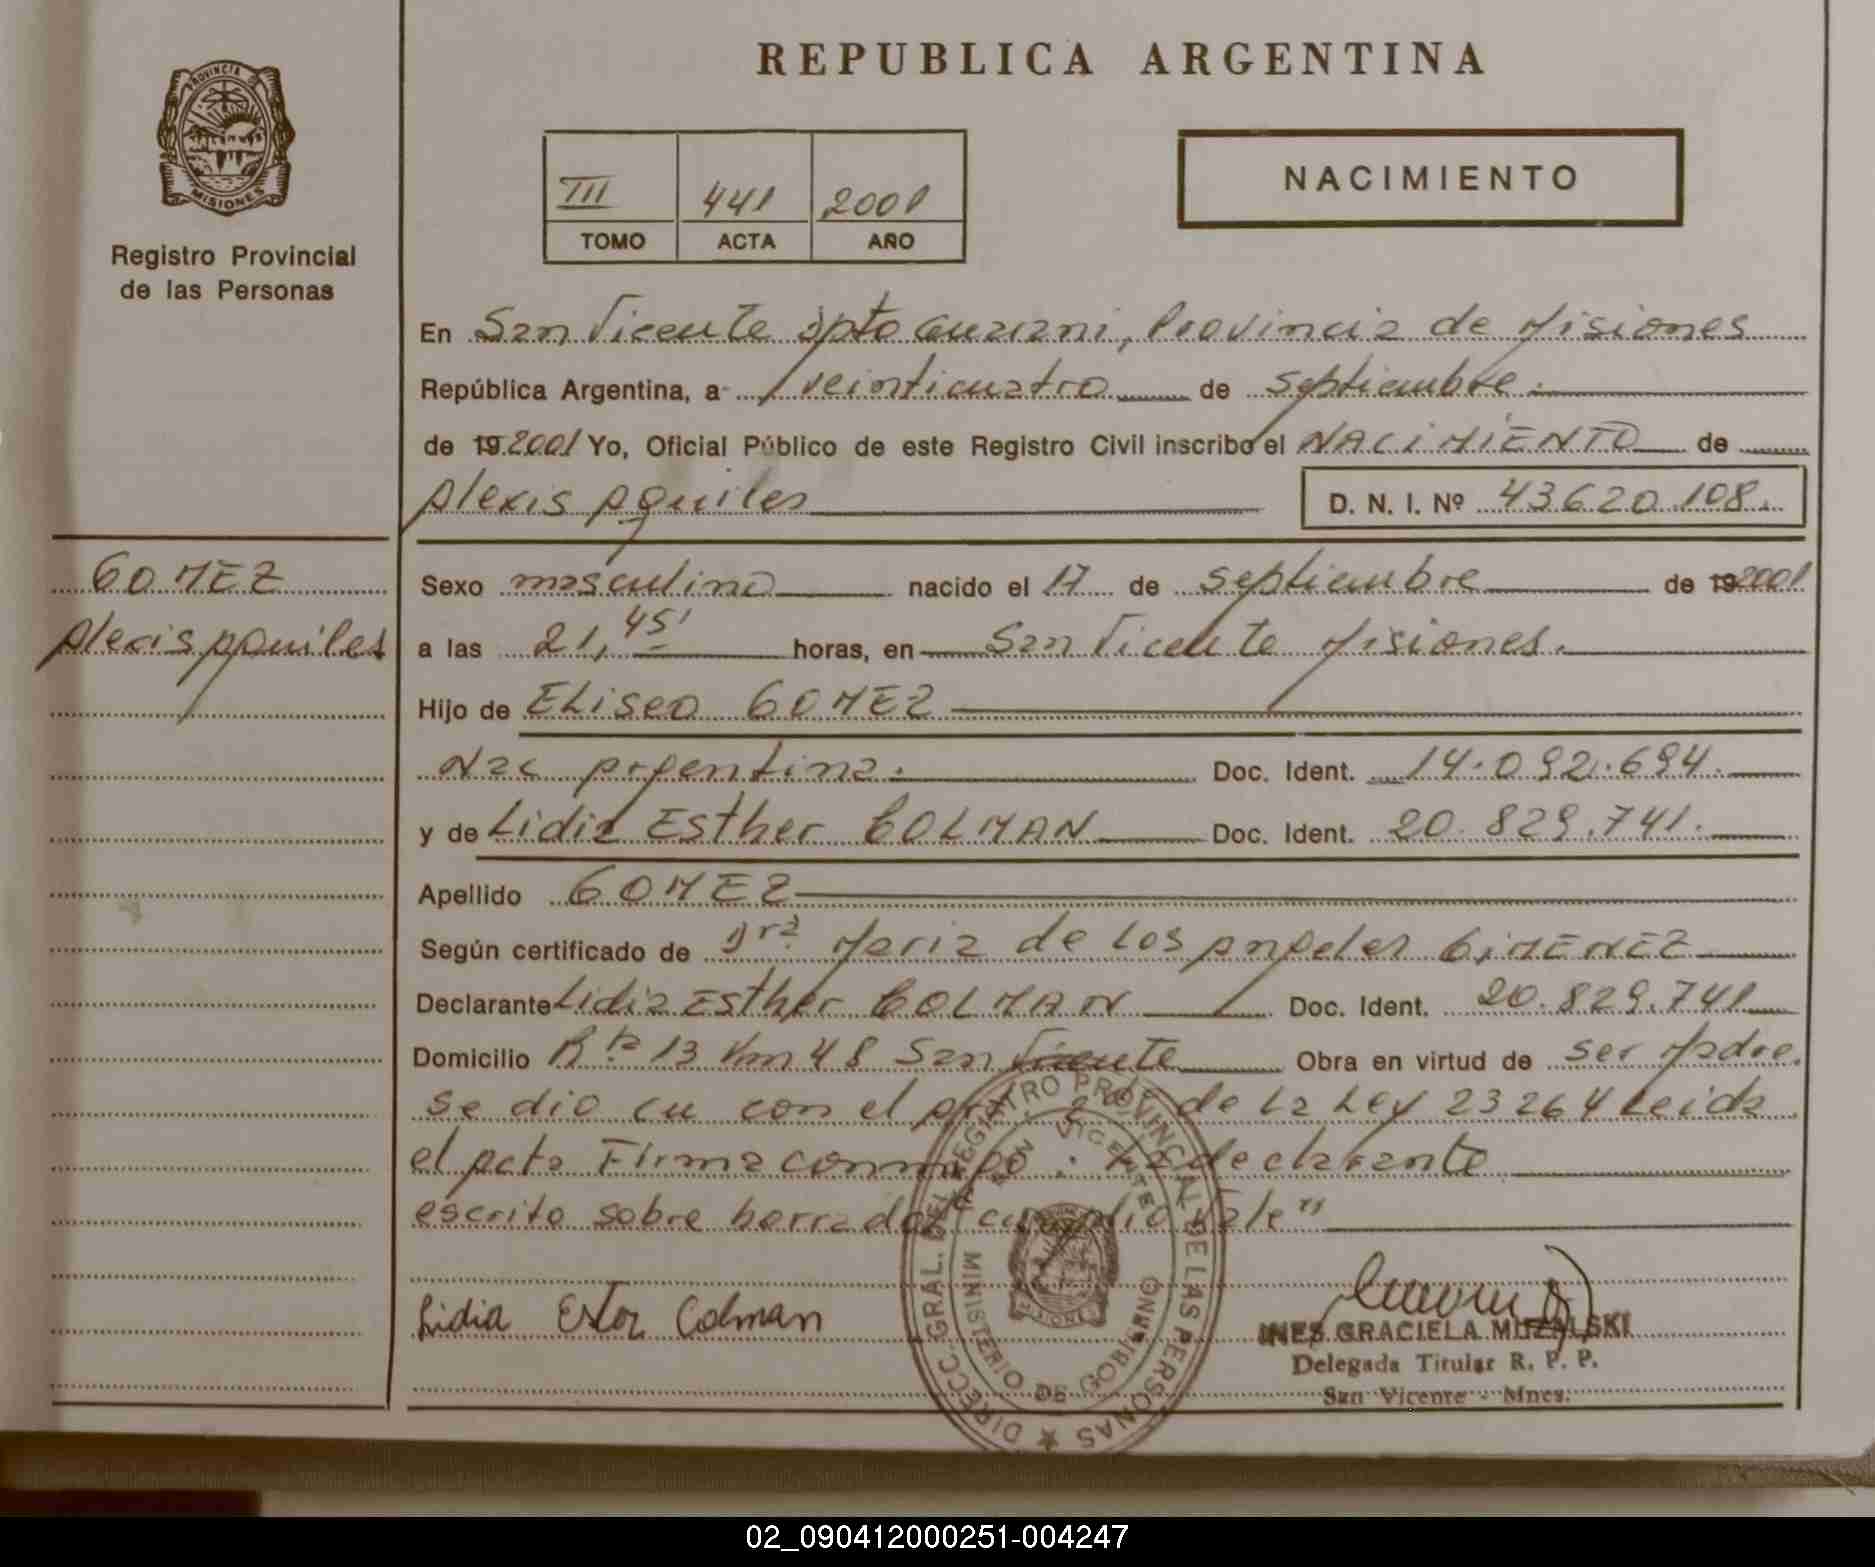 REPUBLICA ARGENTINA
PROVINCIA
MISIONES
Registro Provincial
de las Personas
III 441 2001
TOMO ACTA AÑO
NACIMIENTO
En San Vicente Dpto Guarani, Provincia de Misiones
República Argentina, a veinticuatro de septiembre.
de 19 2001 Yo, Oficial Público de este Registro Civil inscribo el NACIMIENTO de
Alexis Aquiles D. N. I. Nº 43620.108.
GOMEZ
Alexis Aquiles
Sexo masculino nacido el 17 de septiembre de 19 2001
a las 21,45' horas, en San Vicente Misiones.
Hijo de ELiseo GOMEZ
Nac Argentina. Doc. Ident. 14.092.694.
y de Lidia Esther COLMAN Doc. Ident. 20.829.741.
Apellido GOMEZ
Según certificado de Dra. Maria de Los Angeles GiMENEZ
Declarante Lidia Esther COLMAN Doc. Ident. 20.829.741
Domicilio Rta 13 Km 48 San Vicente Obra en virtud de ser Madre.
se dio cu con el Art. de La Ley 23264 Leida
el Acta Firma conmigo: La declarante
escrito sobre borrado: "cumplio Vale"
Lidia Ester Colman
DIRECC. GRAL. DEL REGISTRO PROVINCIAL DE LAS PERSONAS
SAN VICENTE
MINISTERIO DE GOBIERNO
INES GRACIELA MUZALSKI
Delegada Titular R. P. P.
San Vicente - Mnes.
02_090412000251-004247